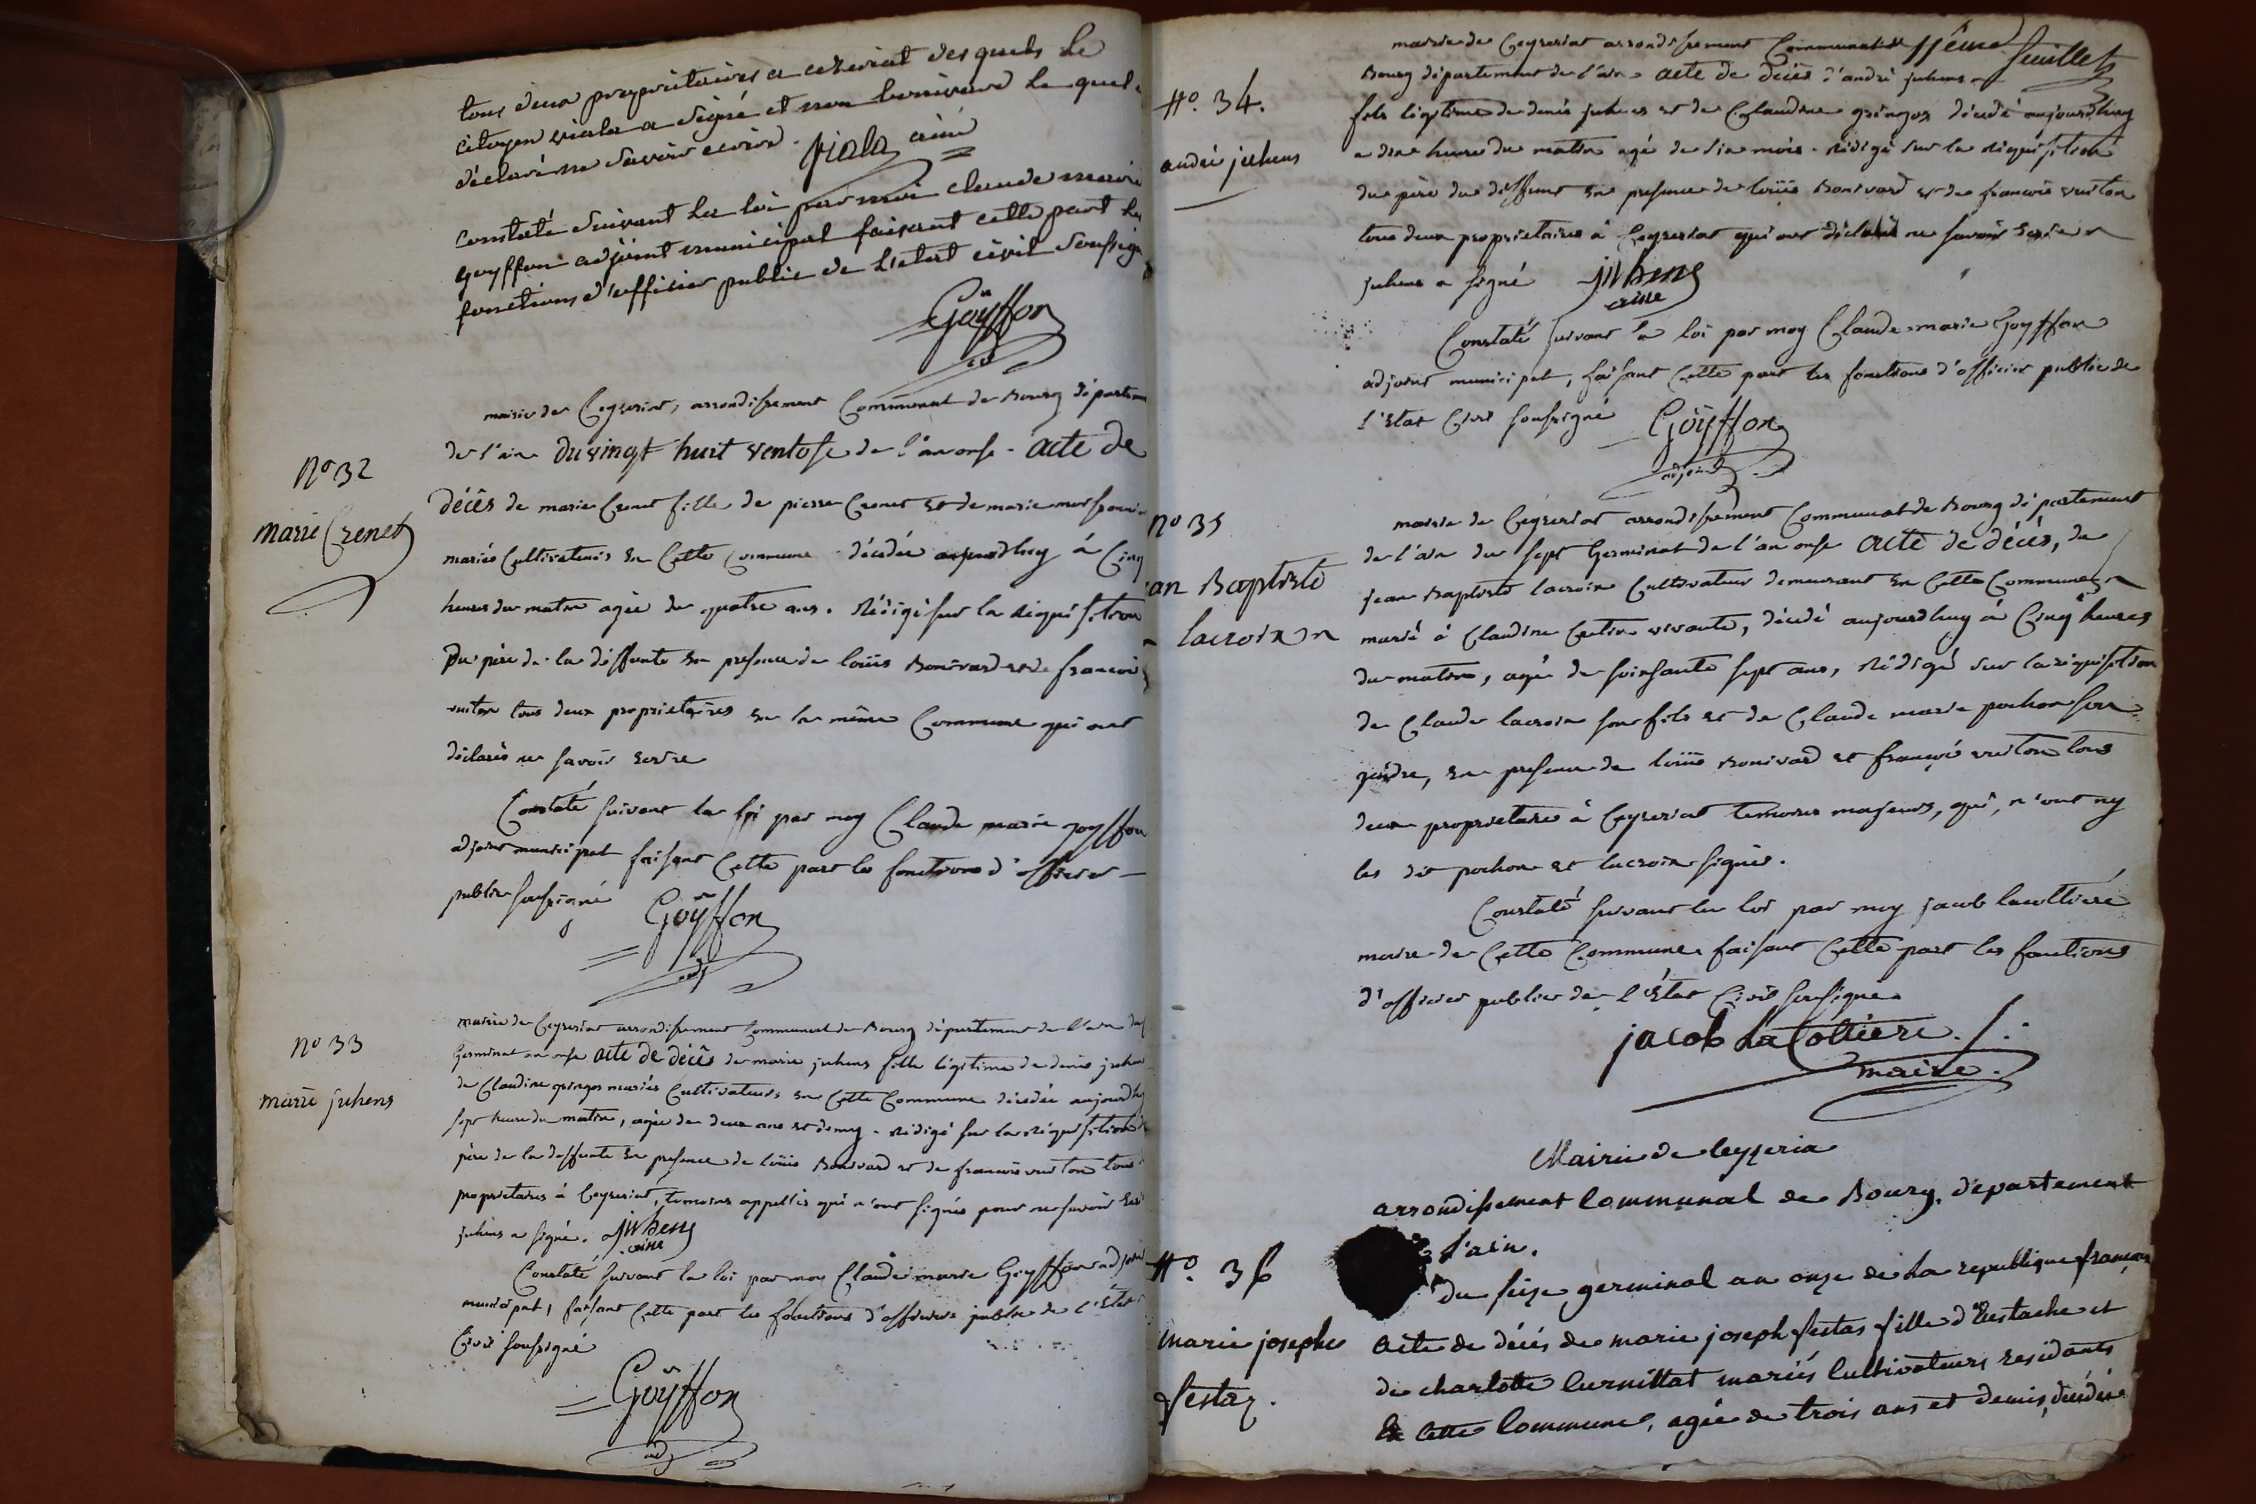 tous deux proprietaires a ceseriat desquels le
citoyen viala a signé et non bonivard le quel a
déclaré ne savoir ecrire. viala ainé
constaté suivant la loi par moi claude marie
goyffon adjoint municipal faisant cette part les
fonctions d'officier public de l'etat civil soussigné
Goÿffon
adj
mairie de Ceyseriat, arrondissement Communal de Bourg départem
de l'ain Du vingt huit ventose de l'an onse - acte de
N° 32
marie Crenet
décès de marie Crenet fille de pierre Crenet et de marie
mariés Cultivateurs en Cette Commune - décédée aujourdhuy à Cinq
heures du matin agée de quatre ans. Rédigé sur la réquisition
Du père de la déffunte en presence de loüis Bonivard et de francois
vuiton tous deux proprietaires en la même Commune qui ont
déclarés ne savoir ecrire
Constaté suivant la loi par moy Claude marie goyffon
adjoint municipal faisant Cette part les fonctions d'officier
public soussigné Goÿffon
adj
N° 33
marie juhens
mairie de Ceyseriat arrondissement Communal de Bourg département de l'ain du
Germinal an onse acte de décès de marie juhens fille légitime de denis juhens
de Claudine gringoz mariés Cultivateurs en Cette Commune décédée aujourdhuy
sept heure du matin, agée de deux ans et demy - rédigé sur la réquisition
père de la deffunte en presence de loüis Bonivard et de francois vuiton tous
proprietaires à Ceyseriat, temoins appellés qui n'ont signés pour ne savoir
juhens a signé. juhens
ainé
Constaté suivant la loi par moy Claude marie Goyffon adjoint
municipal, faisant Cette part les fonctions d'officier public de l'état
Civil soussigné
Goÿffon
adj
mairie de Ceyseriat arrondissement Communal de 11ême feuillet
Bourg département de l'ain - acte de décès d'andré juhens
N° 34.
andré juhens
fils légitime de denis juhens et de Claudine gringoz décédé aujourdhuy
a dix heure du matin agé de six mois - rédigé sur la réquisition
du père du deffunt en presence de loüis Bonivard et de francois vuiton
tous deux proprietaires à Ceyseriat qui ont déclaré ne savoir ecrire
juhens a signé juhens
ainé
Constaté suivant la loi par moy Claude marie Goyffon
adjoint municipal, faisant Cette part les fonctions d'officier public de
l'état Civil soussigné Goÿffon
adjoint
N° 35
an Baptiste
lacroix
mairie de Ceyseriat arrondissement Communal de Bourg département
de l'ain du sept Germinal de l'an onse acte de décès, de
jean Baptiste lacroix Cultivateur demeurant en Cette Commune
marié à Claudine vivante, décédé aujourdhuy à Cinq heures
du matin, agé de soixante sept ans, rédigé sur la réquisition
de Claude lacroix son fils et de Claude marie pochon son
gendre, en presence de loüis Bonivard et françois vuiton tous
deux proprietaire à Ceyseriat temoins majeurs, qui, n'ont ny
les dit pochon et lacroix signés.
Constaté suivant la loi par moy jacob lacottiere
maire de Cette Commune faisant Cette part les fonctions
d'officier public de l'état Civil soussigné
jacob La Cottiere
maire.
Mairie de Ceyzeria
arrondissement Communal de Bourg, departement
l'ain.
N°. 36
marie josephe
festaz.
du seize germinal an onze de la republique française
acte de décès de marie joseph festas fille d'Eustache et
de charlotte Curnillat mariés Cultivateurs residants
en cette Commune, agée de trois ans et demis, décédée